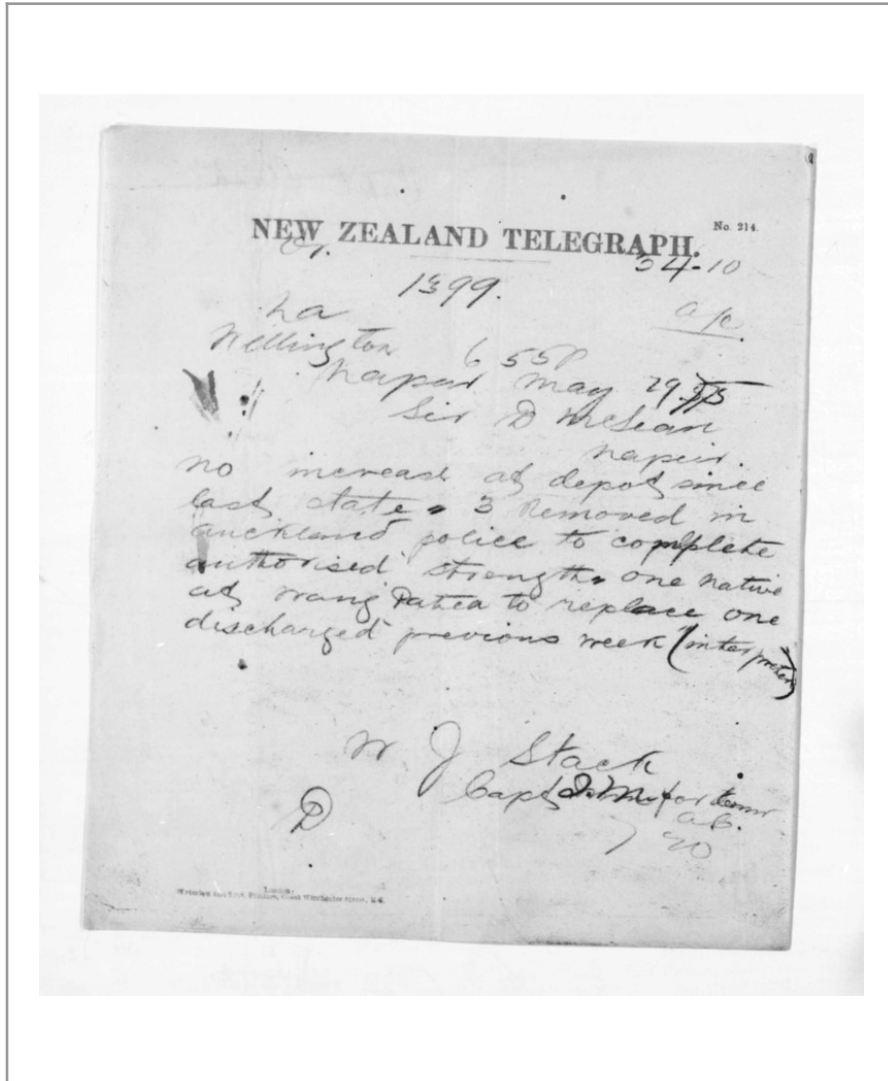 No. 214.
NEW ZEALAND TELEGRAPH.
34-10
1399.
na
Wellington 6 55 P
Napier May 29
Sir D McLean
Napier.
no increase at depot since
last state. 3 Removed in
auckland police to complete
authorised strength. one native
at Patea to replace one
discharged previous week (interpreter)
W J Stack
Capt for
a.c.
D
London: